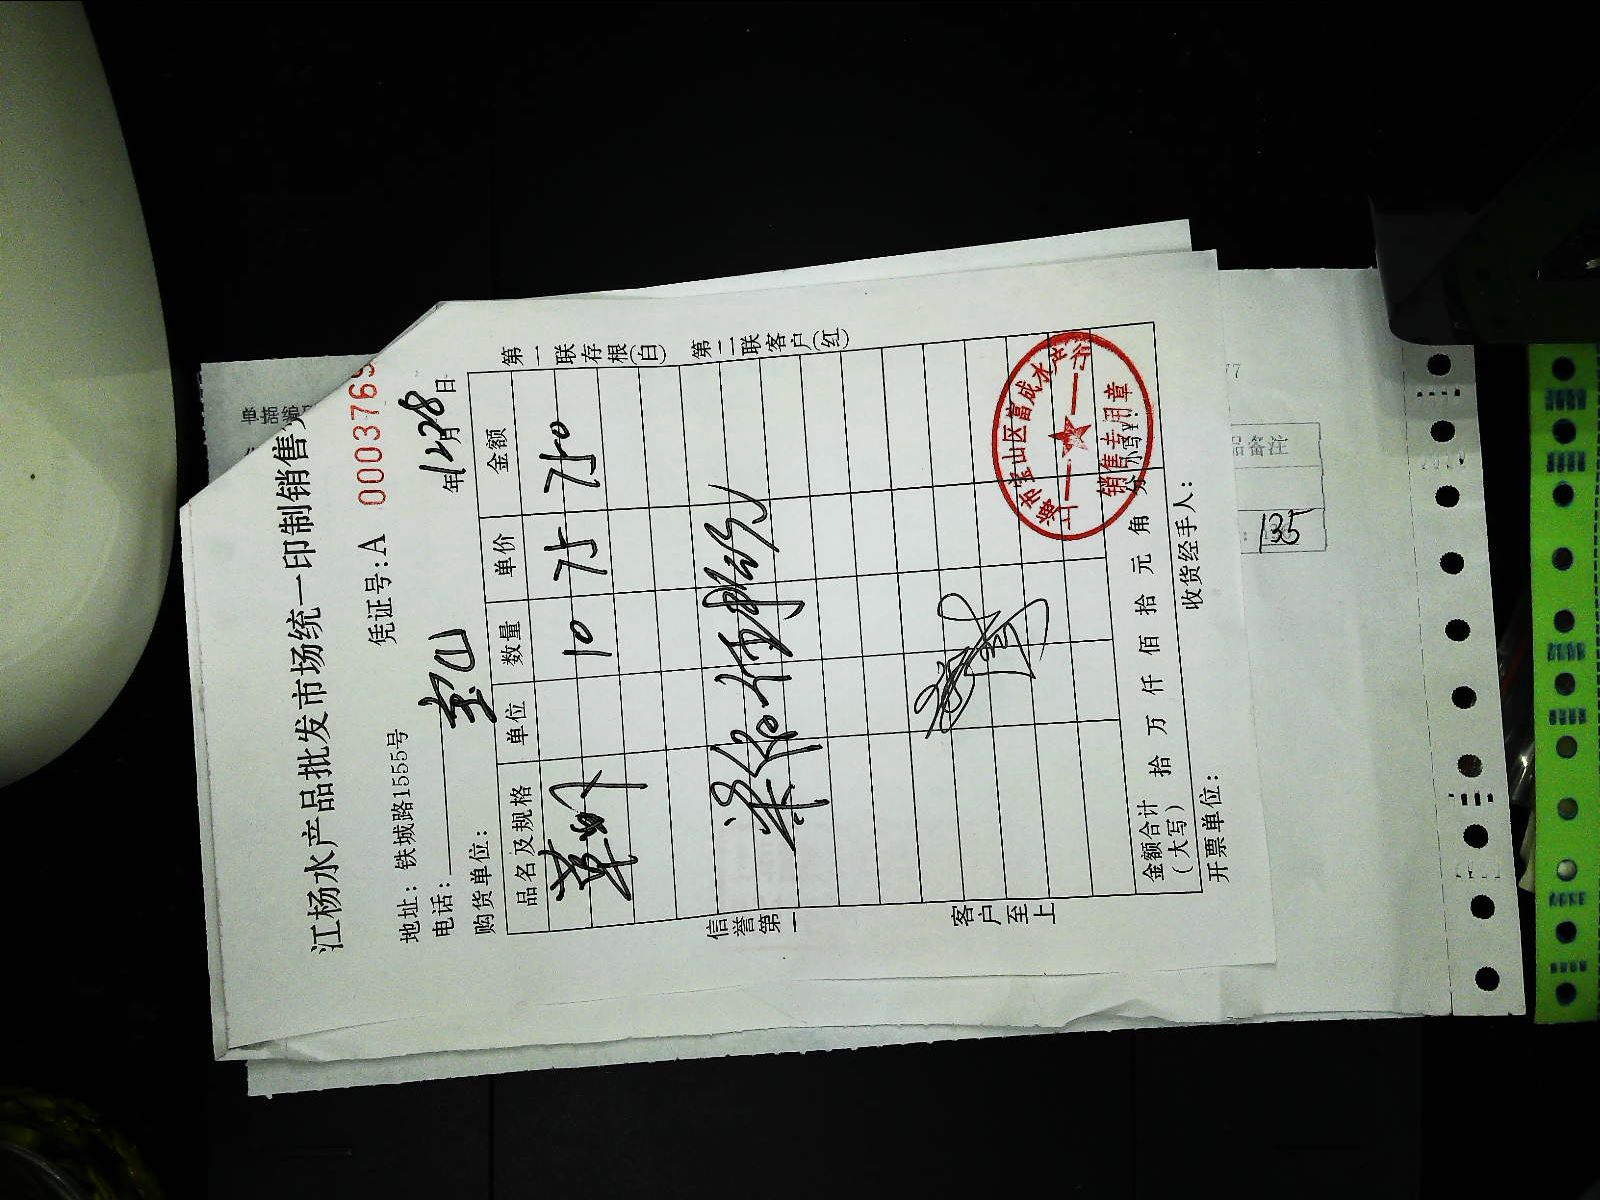 江杨水产品批发市场统一印制销售
凭证号:A 0003769
地址: 铁城路1555号
电话:
年12月28日
购货单位: 宝山
第一联存根(白)
第二联客户(红)
品名及规格 单位 数量 单价 金额
草虾 10 75 750
信誉第一
客户至上
上海市宝山区富成水产行
销售专用章
金额合计(大写) 拾 万 仟 佰 拾 元 角 分 小写¥:
开票单位:
收货经手人:
品备注
135
77